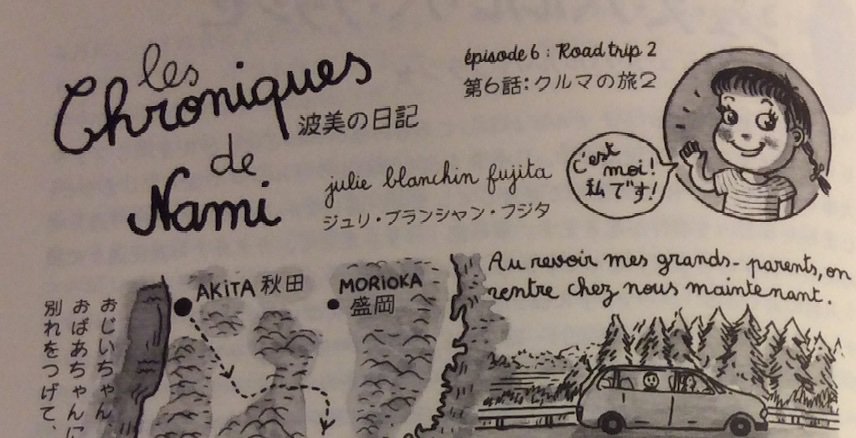 les
Chroniques
de
Nami
波美の日記
épisode 6 : Road trip 2
第6話:クルマの旅2
julie blanchin fujita
ジュリ・ブランシャン・フジタ
c'est
moi!
私です!
Au revoir mes grands-parents, on
rentre chez nous maintenant.
AKITA 秋田
MORIOKA
盛岡
おじいちゃん、
おばあちゃんに
別れをつげて、